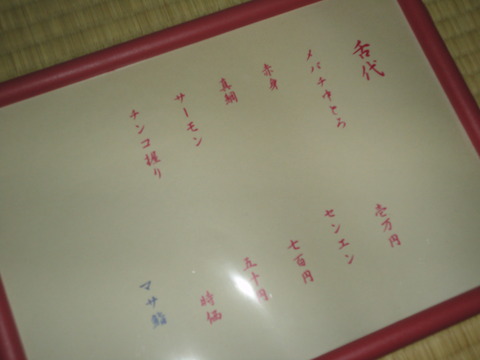 舌代
メバチ中とろ 壱万円
赤身 センエン
真鯛 七百円
サーモン 五十円
チンコ握り 時価
マサ鮨